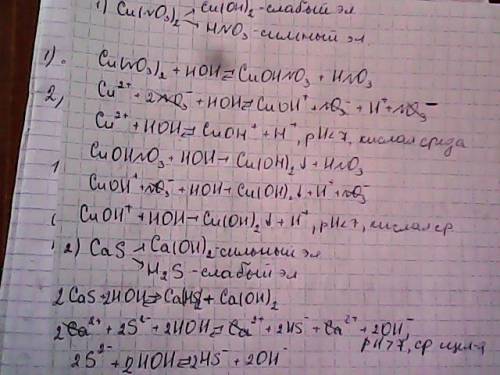 1) Cu(NO₃)₂ → Cu(OH)₂ - слабый эл
→ HNO₃ - сильный эл.
1). Cu(NO₃)₂ + HOH ⇄ CuOHNO₃ + HNO₃
2, Cu²⁺ + 2NO₃⁻ + HOH ⇄ CuOH⁺ + NO₃⁻ + H⁺ + NO₃⁻
Cu²⁺ + HOH ⇄ CuOH⁺ + H⁺, pH<7, кислая среда
CuOHNO₃ + HOH → Cu(OH)₂↓ + HNO₃
CuOH⁺ + NO₃⁻ + HOH → Cu(OH)₂↓ + H⁺ + NO₃⁻
CuOH⁺ + HOH → Cu(OH)₂↓ + H⁺, pH<7, кислая ср.
2) CaS → Ca(OH)₂ - сильный эл
→ H₂S - слабый эл
2CaS + 2HOH ⇄ Ca(HS)₂ + Ca(OH)₂
2Ca²⁺ + 2S²⁻ + 2HOH ⇄ Ca²⁺ + 2HS⁻ + Ca²⁺ + 2OH⁻,
pH>7, ср щел-я
2S²⁻ + 2HOH ⇄ 2HS⁻ + 2OH⁻